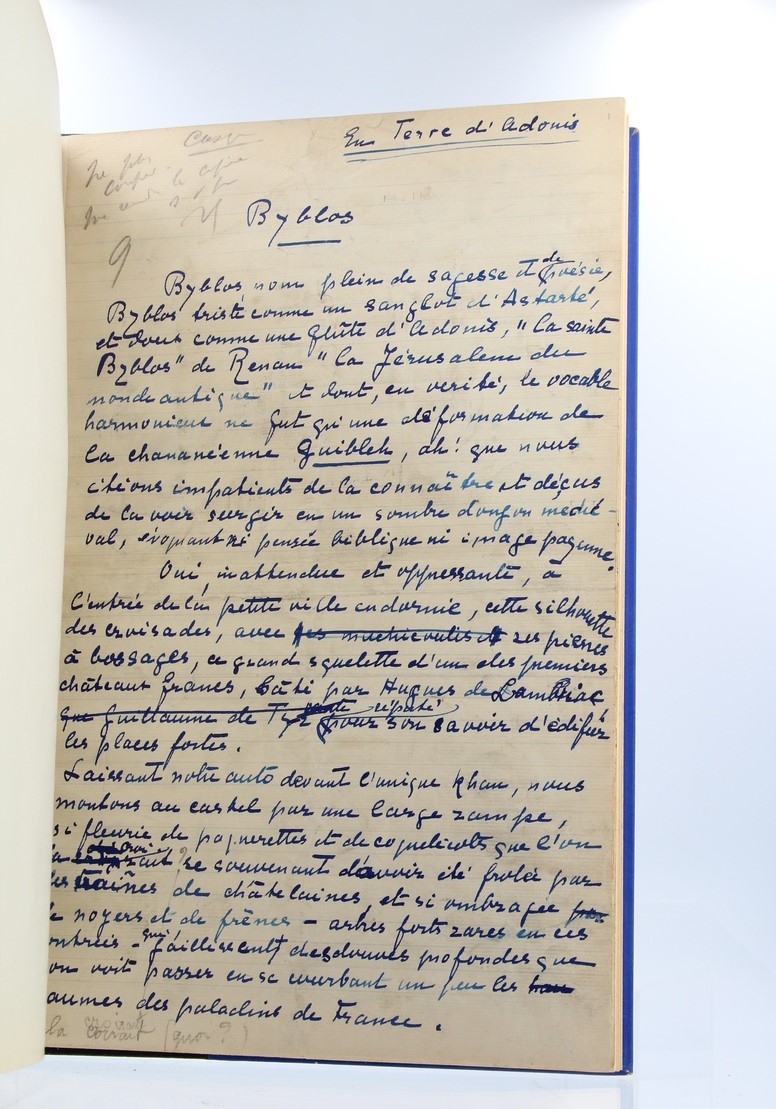 En Terre d'Adonis
Byblos
9
Byblos nom plein de sagesse et de poésie,
Byblos triste comme un sanglot d'Astarté,
et doux comme une flûte d'Adonis, "la sainte
Byblos" de Renan "la Jérusalem du
monde antique" et dont, en verité, le vocable
harmonieux ne fut qu'une déformation de
la chananéenne Guibleh, ah! que nous
étions impatients de la connaître et déçus
de la voir surgir en un sombre donjon médié-
val, évoquant ni pensée biblique ni image payenne.
Oui, inattendue et oppressante, à
l'entrée de la petite ville endormie, cette silhouette
des croisades, avec ses machicoulis et ses pierres
à bossages, ce grand squelette d'un des premiers
châteaux francs, bâti par Hugues de Lambriac
que Guillaume de Tyr vante réputé pour son savoir d'édifier
les places fortes.
Laissant notre auto devant l'unique Khan, nous
montons au castel par une large rampe,
si fleurie de paquerettes et de coquelicots que l'on
la croirait ? se souvenant d'avoir été frolée par
les traînes de châtelaines, et si ombragée par
de noyers et de frênes – arbres forts rares en ces
ontrées – qui jaillissent des douves profondes que
on voit passer en se courbant un peu les hau
aumes des paladins de France.
la croirait (quoi ?)